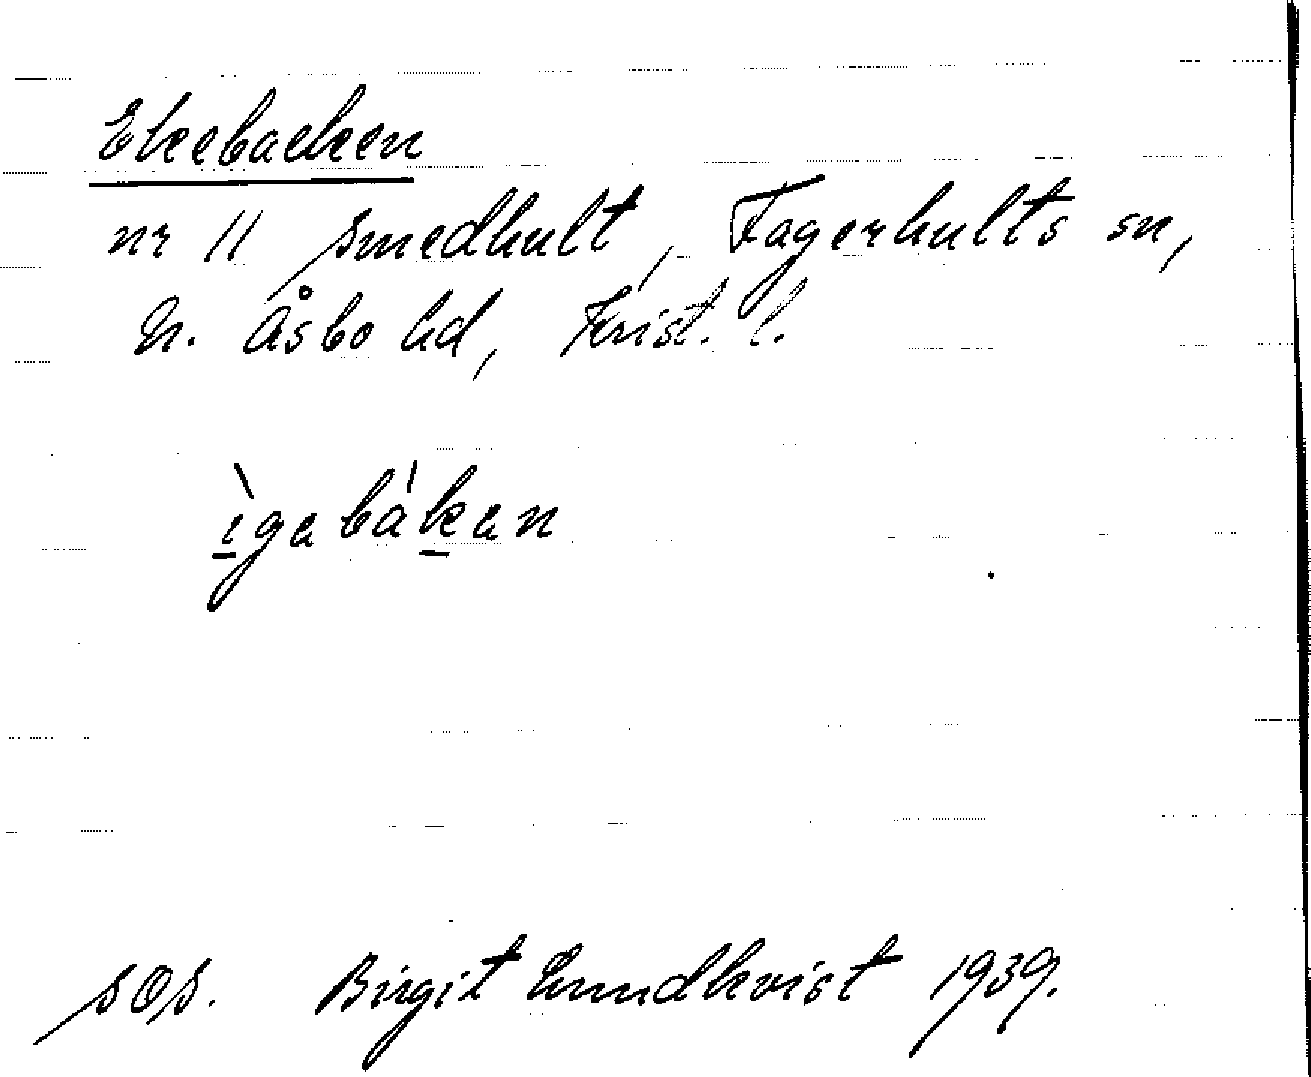 Ekebacken
nr 11 Smedhult, Fagerhults sn,
N. Åsbo hd, Krist. l.
ìgabákan
SOS. Birgit Lundkvist 1939.